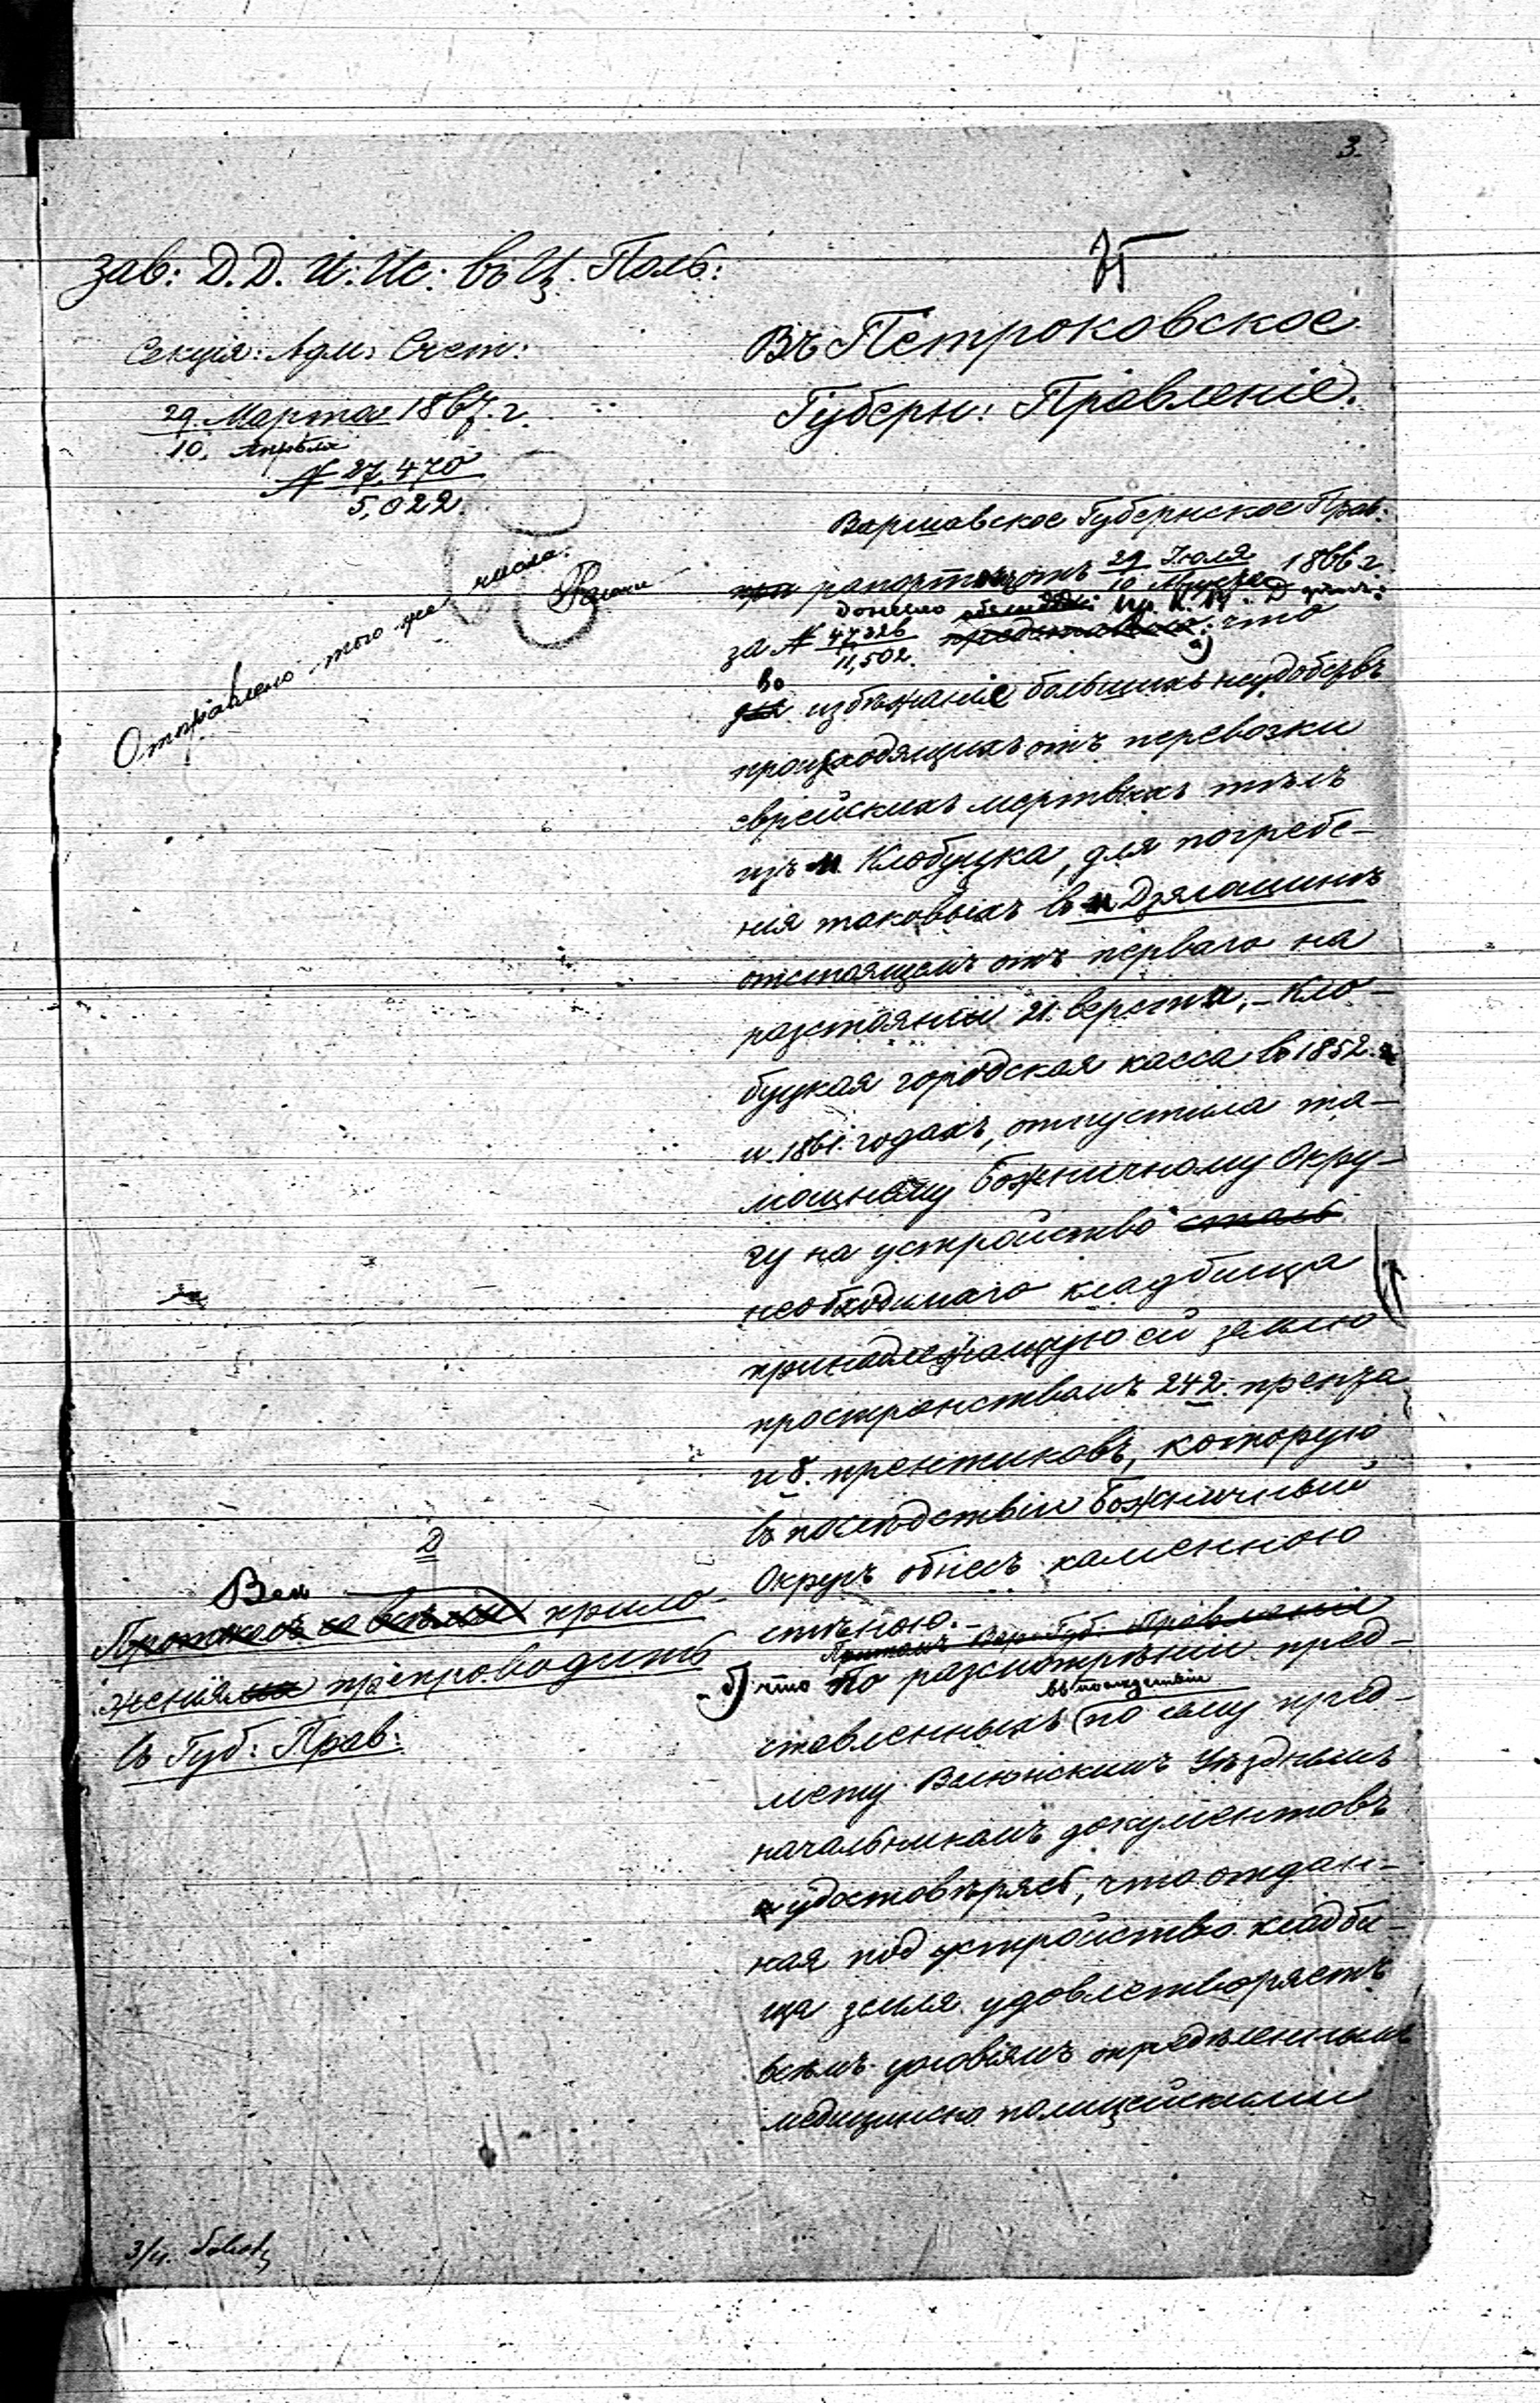 3.
Зав: Д.Д. И: Ис: въ Ц. Поль:
Секція: Адм: Счет:
29 Марта 1867. г.
10. Апрѣля
№ 27,470
5,022
Отправлено того же числа.
Въ Петроковское
Губерн: Правленіе.
Варшавское Губернское Прав:
при рапортѣ отъ 29 Іюля 1866 г.
10
донесло
за № 47326 представило: что
11,502.
а)
во
для избѣжаніе большихъ неудобствъ
происходящихъ отъ перевозки
еврейскихъ мертвыхъ тѣлъ
изъ м Клобуцка, для погребе-
нія таковыхъ въ м Дзялошинѣ
отстоящемъ отъ перваго на
разстояніи 21. версты, - Кло-
буцкая городская касса въ 1852.
и 1861. годахъ, отпустила та-
мошнему Божничному Окру-
гу на устройство столь
необходимаго кладбища
принадлежащую ей землю
пространствомъ 242. прента
и 8. прентиковъ, которую
въ послѣдствіи Божничный
Округъ обнесъ каменною
стѣною. -
Притомъ Вар. Губ. Правленіе
б) что По разсмотрѣніи пред-
въ послѣдствіи
ставленныхъ по сему пред-
мету Велюнскимъ Уѣзднымъ
начальникомъ документовъ
и удостовѣрясь, что отдан-
ная подъ устройство кладби-
ща земля удовлетворяетъ
всѣмъ условіямъ опредѣленнымъ
медицинско полицейскими
Д
Всѣ
Протоколъ со всѣми прило-
женія ми препроводить
въ Губ: Прав:
3/4.